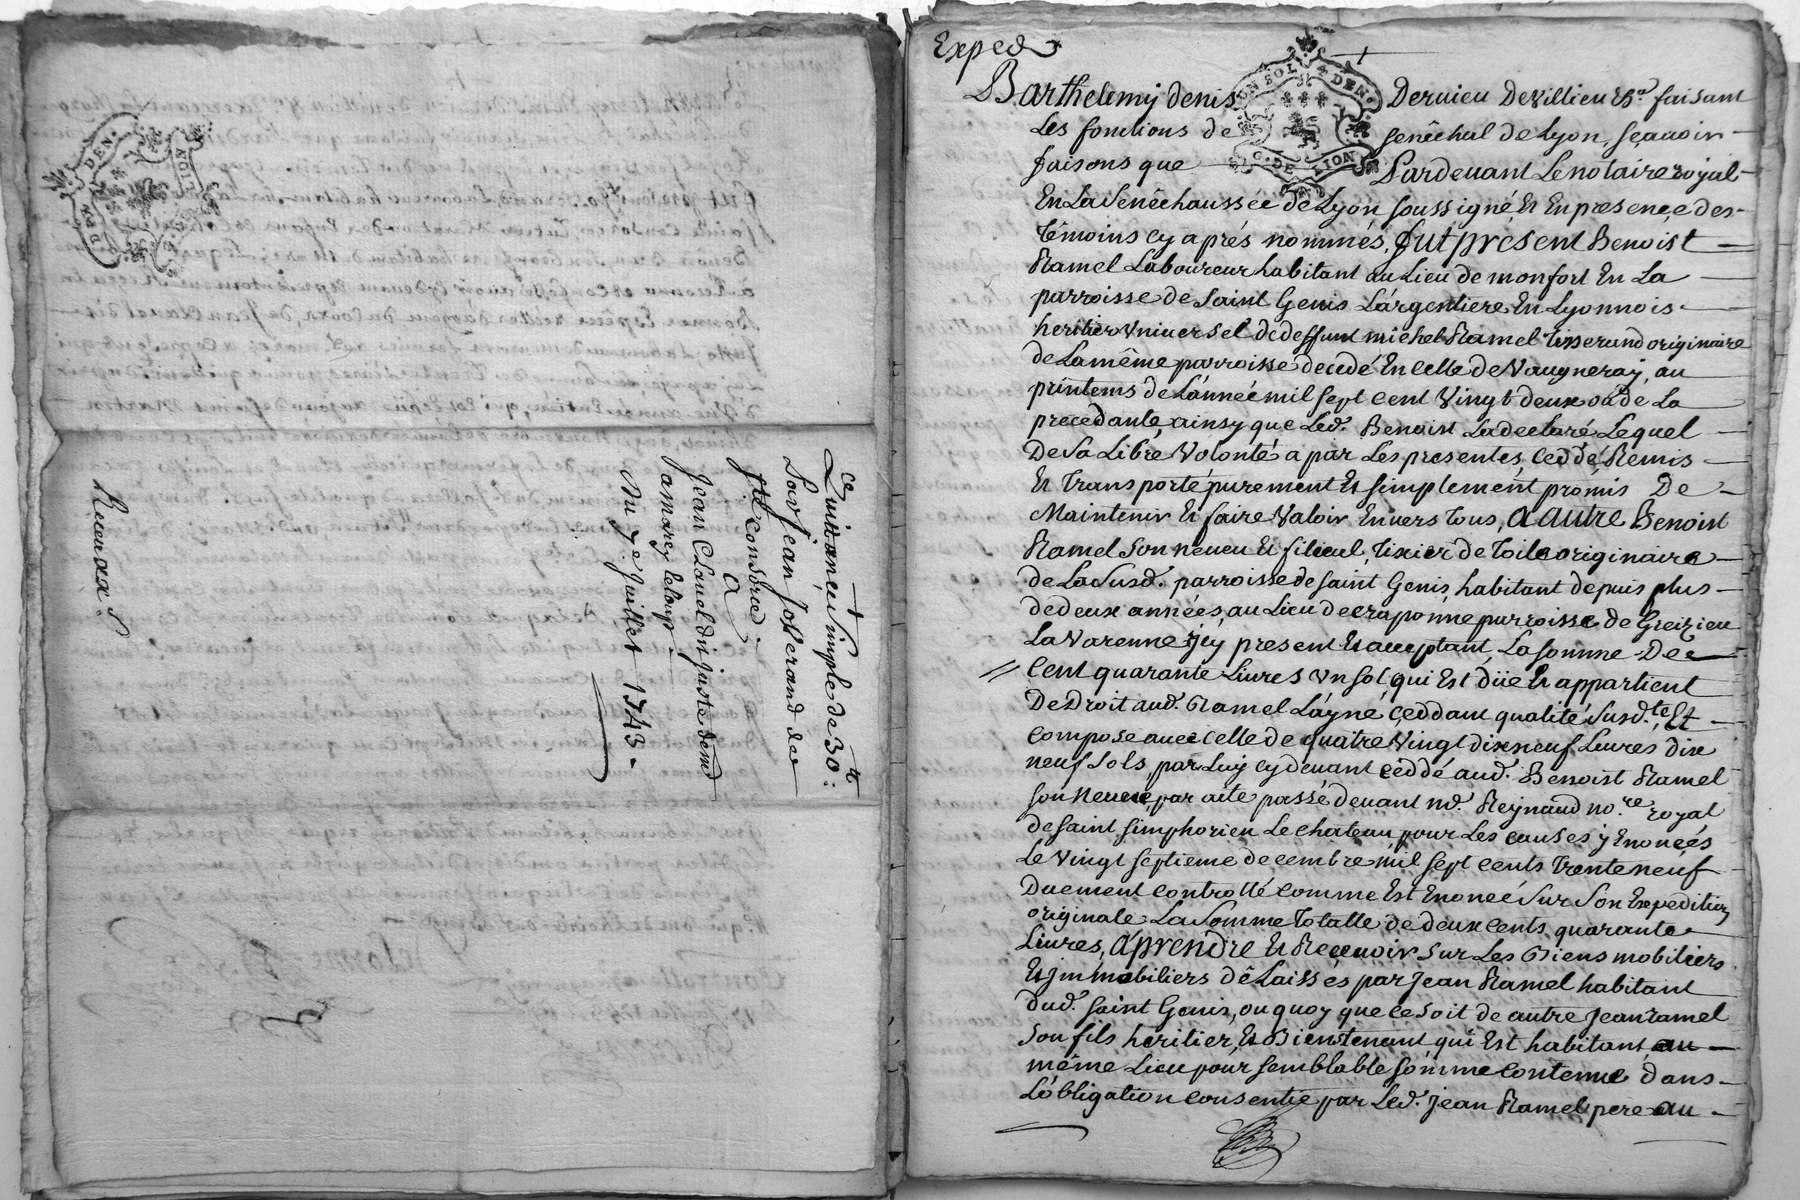 Quittance simple de 30:
par Jean Jofserand de
Ste Consorce.
A
Jean Claud du juste demt
a marcy le loup.
Du 7e Juillet 1743.
Exped
Barthelemy denis Deruieu De Villieu Er. faisant
les fonctions de senêchal de Lyon, sçauoir
faisons que Pardeuant Le notaire royal
En La senêchaussée de Lyon soussigné Et En presence des
têmoins cy aprés nommés, fut present Benoist
Ramel Laboureur habitant au Lieu de monfort En La
parroisse de saint Genis L'argentiere En Lyonnois
heritier vniversel de deffunt michel Ramel tisserand originaire
de La même parroisse decedé En celle de Vaugneray, au
printems de L'année mil sept cent Vingt deux ou de La
precedante ainsy que Led. Benoist La declaré Lequel
De sa Libre Volonté a par Les presentes, ceddé, Remis
Et transporté purement Et simplement, promis De
Maintenir Et faire Valoir Envers tous, a autre Benoist
Ramel son neueu Et filieul tixier de toile originaire
de La susd. parroisse de saint Genis, habitant depuis plus
de deux années, au Lieu de craponne parroisse de Greizieu
La Varenne jcy present Et acceptant, La somme De
Cent quarante Livres vn sol qui Est düe Et appartient
De Droit aud. Ramel L'ayné ceddant qualité susd.te, Et
compose auec celle de quatre Vingt dixneuf Liures dix
neuf sols, par Luy cy deuant ceddé aud. Benoist Ramel
son neueu, par acte passé deuant md. Reynaud no.re royal
de saint simphorien Le chateau pour Les causes y Enoncés
Le Vingt septieme decembre mil sept cents trente neuf
Duement controllé comme Est Enoncé sur son Expedition
originale La somme totalle de deux cents quarante
Livres, a prendre Et Receuoir sur Les Biens mobiliers
Et jmmobiliers dêLaissés par Jean Ramel habitant
dud. saint Genis, ou quoy que ce soit de autre Jean ramel
son fils héritier, Et Bientenant qui Est habitant au
même Lieu pour semblable somme contenue dans
L'obligation consentie par Led. Jean Ramel pere au